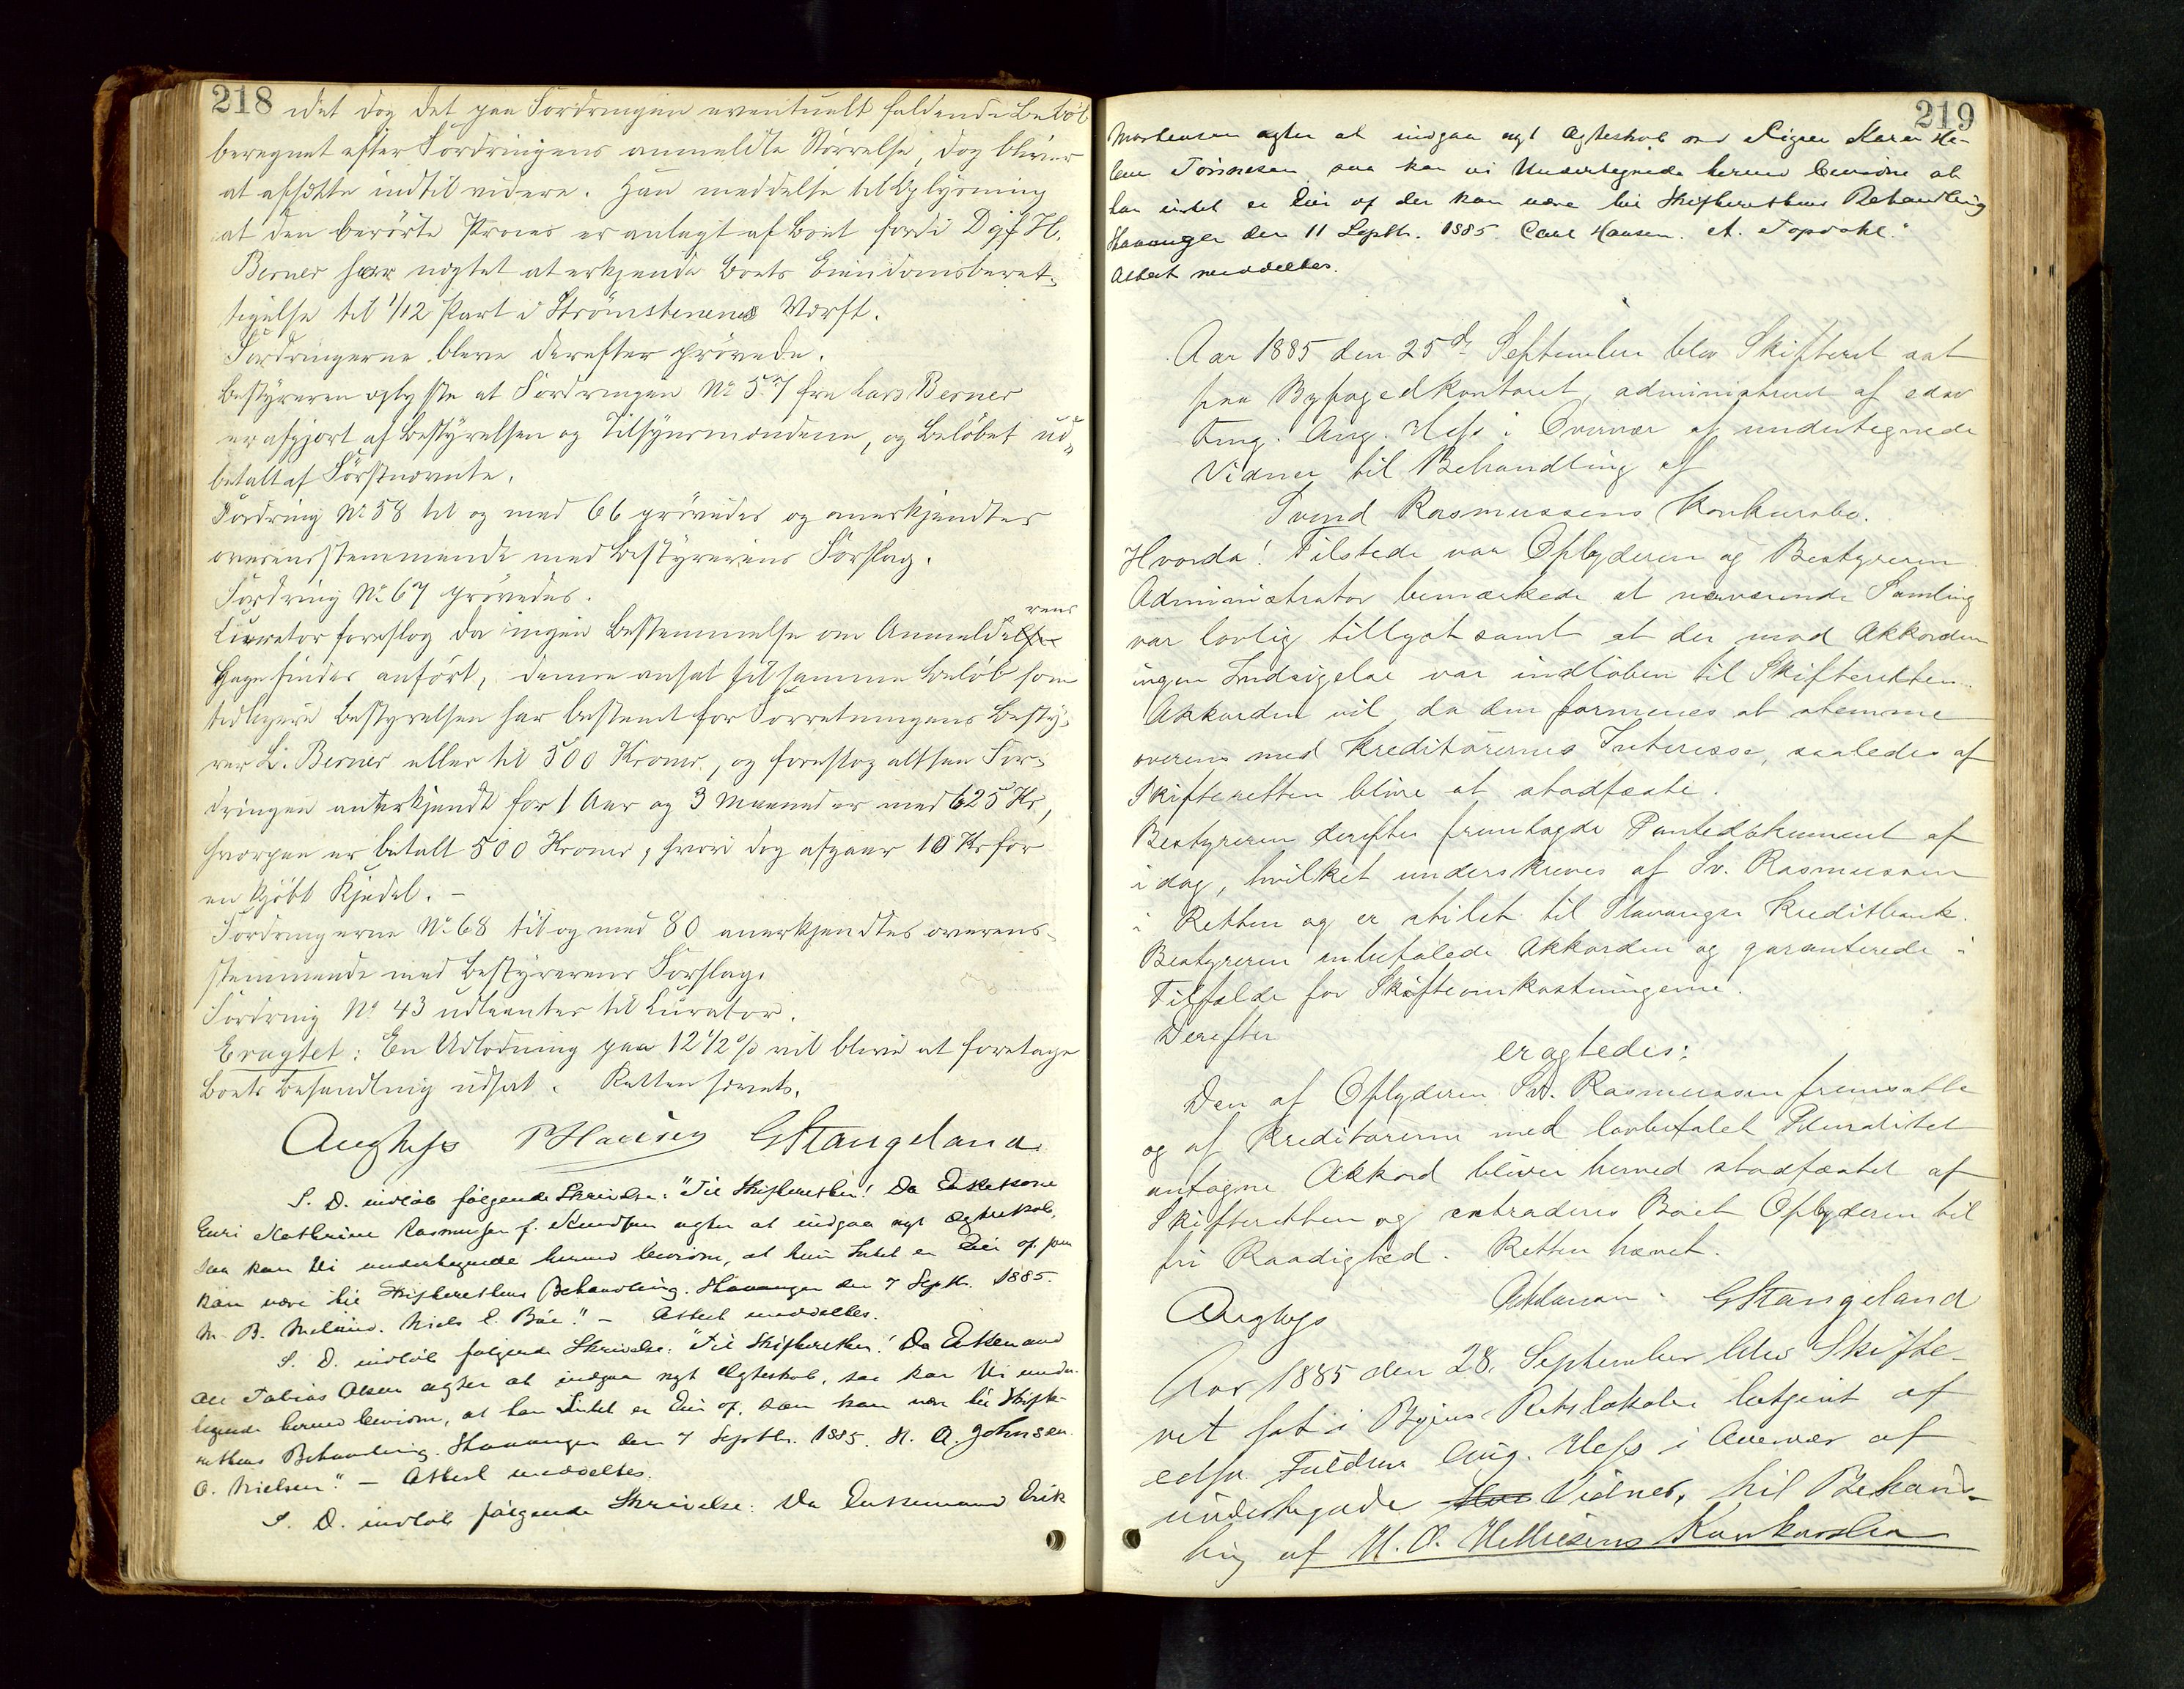 218
idet dog det paa Fordringen eventuelt faldende Beløb
beregnet efter Fordringens anmeldte Størrelse, dog bliver
at afsætte indtil videre. Han meddelte til Oplysning
at den berørte Proces er anlagt af Boet fordi D H.
Berner har nægtet at erkjende Boets Eiendomsberet-
tigelse til 1/12 Part i Strømstenens Værft.
Fordringerne bleve derefter prøvede.
Bestyreren oplyste at Fordringen No 57 fra Lars Berner
er afgjort af Bestyrelsen og Tilsynsmændene, og Beløbet ud-
betalt af Førstnævnte.
Fordring No 58 til og med 66 prøvedes og anerkjendtes
overensstemmende med Bestyrerens Forslag.
Fordring No 67 prøvedes.
rens
Curator foreslog da ingen Bestemmelse om Anmeldelse
Gage findes anført, denne ansat til samme Beløb som
tidligere Bestyrelsen har bestemt for Forretningens Besty-
rer L. Berner eller til 500 Kroner, og foreslog altsaa For-
dringen anerkjendt for 1 Aar og 3 Maaneder med 625 Kr.,
hvorpaa er betalt 500 Kroner, hvori dog afgaar 10 Kr for
en kjøbt Kjedel. –
Fordringerne No 68 til og med 80 anerkjendtes overens-
stemmende med Bestyrerens Forslag.
Fordring No 43 udlaantes til Curator.
Eragtet: En Udlodning paa 12 1/2 % vil blive at foretage
Boets Behandling udsat. Retten hævet.
Aug Hess P Hansen G Stangeland
S. D. indløb følgende Skrivelse: "Til Skifteretten! Da Enkekone
Guri Kathrine Rasmussen f. Knudsen agter at indgaa nyt Ægteskab,
saa kan Vi undertegnede herved bevidne, at hun Intet er Eier af som
kan være til Skifterettens Behandling. Stavanger den 7 Septb. 1885.
M. B. Meland. Niels E. Bøe." – Attest meddeltes.
S. D. indløb følgende Skrivelse: "Til Skifteretten! Da Enkemand
Ole Tobias Olsen agter at indgaa nyt Ægteskab, saa kan Vi under-
tegnede herved bevidne, at han Intet er Eier af, som kan være til Skifte-
rettens Behandling. Stavanger den 7 Septb. 1885. H. A. Johnsen
O. Nielsen." – Attest meddeltes.
S. D. indløb følgende Skrivelse: Da Enkemand Erik
219
Mortensen agter at indgaa nyt Ægteskab med Pigen Karen He-
lene Tønnesen, saa kan vi Undertegnede herved bevidne at
han intet er Eier af der kan være til Skifterettens Behandling
Stavanger den 11 Septb. 1885. Carl Hansen. A. Topdahl."
Attest meddeltes.
Aar 1885 den 25de September blev Skifteret sat
paa Byfogedkontoret, administreret af edsv
Fmg. Aug. Hess i Overvær af undertegnede
Vidner til Behandling af
Svend Rasmussens Konkursbo.
Hvorda! Tilstede var Opbyderen og Bestyreren
Administrator bemærkede at nærværende Samling
var lovlig tillyst samt at der mod Akkorden
ingen Indsigelse var indløben til Skifteretten.
Akkorden vil, da den formenes at stemme
overens med Kreditorernes Interesse, saaledes af
Skifteretten blive at stadfæste.
Bestyreren derefter fremlagde Pantedokument af
i dag, hvilket underskreves af Sv. Rasmussen
i Retten og er stilet til Stavanger Kreditbank.
Bestyreren anbefalede Akkorden og garanterede i
Tilfælde for Skifteomkostningerne.
Derefter
eragtedes:
Den af Opbyderen Sv. Rasmussen fremsatte
og af Kreditorerne med lovbefalet Pluralitet
antagne Akkord bliver herved stadfæstet af
Skifteretten og extraderes Boet Opbyderen til
fri Raadighed. Retten hævet.
Aug Hess G Stangeland
Aar 1885 den 28. September blev Skifte-
ret sat i Byens Retslokale betjent af
edsv. Fuldm Aug. Hess i Overvær af
undertegnede Vidner, til Behand-
ling af H. O. Helliesens Konkursbo